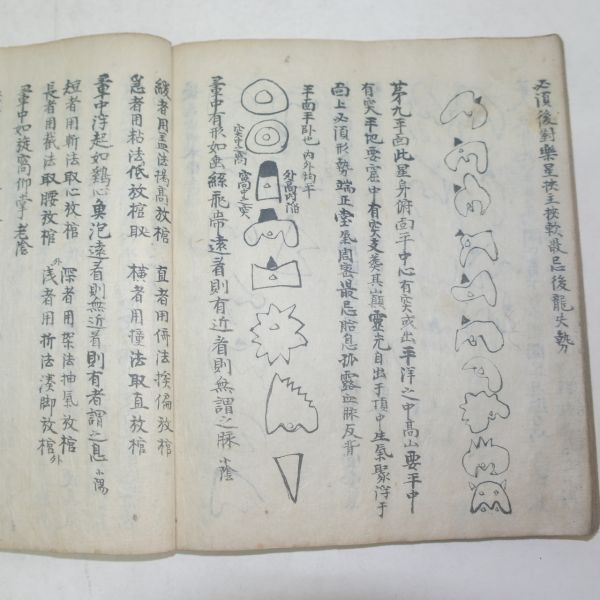 必須後對樂星按主按軟最忌後龍失勢
第九平面此星身俯面平中心有突或出平洋之中高山要平中
有突平地要窩中有突支葬其巔靈光自出于頂中生氣聚浮于
面上必須形勢端正堂氣周密最忌胎息孤露血脉反背
平面平臥也內外均平
外高內陷
突中高
窩中突
暈中有形如虫絲飛帶遠看則有近看則無謂之脉小陰
緩者用盖法揭高放棺　直者用倚法挨偏放棺
急者用粘法低放棺取　橫者用撞法取直放棺
暈中浮起如鷄心魚泡遠看則無近看則有者謂之息小陽
短者用斬法取心放棺　深者用架法抽氣放棺外
長者用截法取腰放棺　浅者用折法湊脚放棺外
暈中如旋窩仰掌老陰